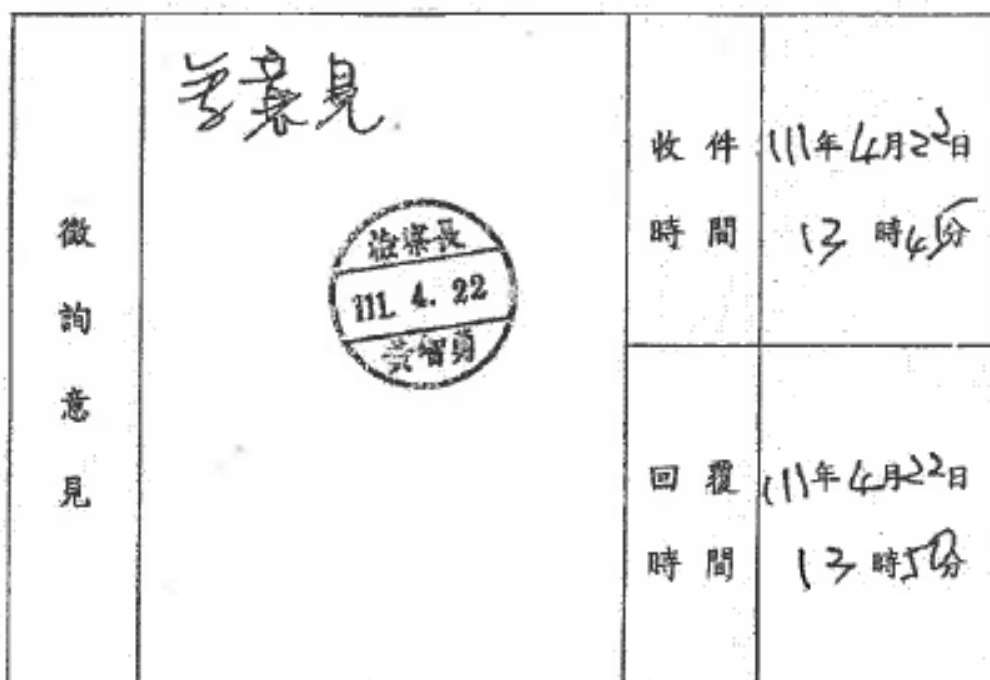 徵詢意見
無意見
檢察長
111. 4. 22
黃智勇
收件時間
111年4月22日
13時45分
回覆時間
111年4月22日
13時50分